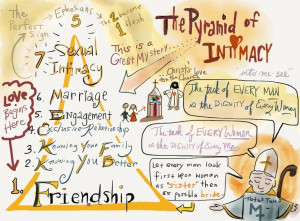 The Perfect Sign
Ephesians
5
2 become 1 flesh
The Pyramid of
INTIMACY
into-me-see
This is a
Great Mystery...
Christ's love
for the Church
7. Sexual
Intimacy
6. Marriage
5. Engagement
4. Exclusive Relationship
3. Knowing Your Family
2. Knowing You Better
1. Friendship
LOVE
Begins
Here
The task of EVERY MAN
is the DIGNITY of Every Woman
The task of EVERY Woman
is the DIGNITY of Every Man
Let every man look
first upon woman
as "sister" then
as possible bride.